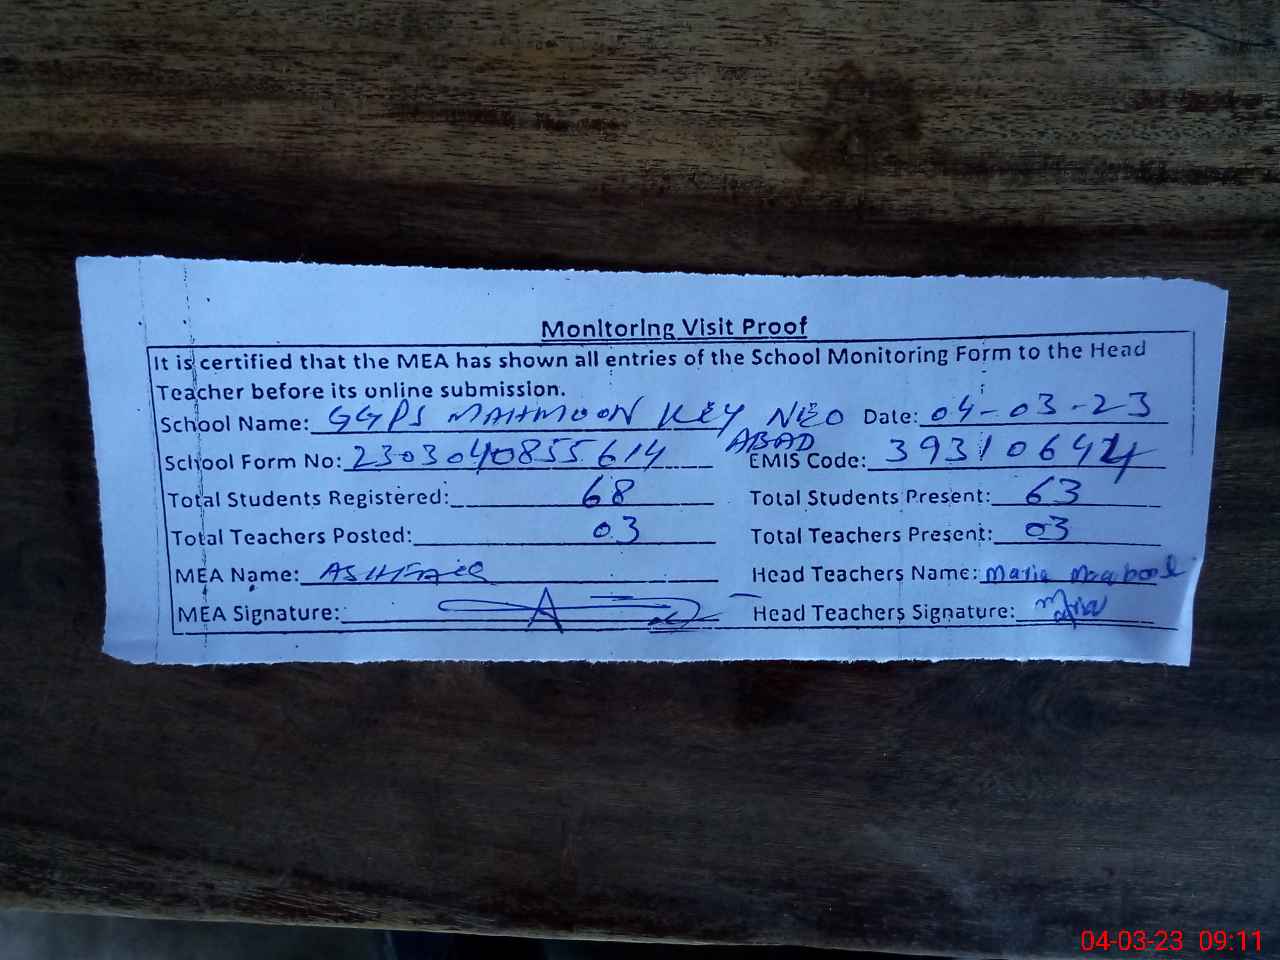 Monitoring Visit Proof
It is certified that the MEA has shown all entries of the School Monitoring Form to the Head
Teacher before its online submission.
School Name: GGPS MAHMOON KEY NEO ABAD Date: 04-03-23
School Form No: 2303040855614 EMIS Code: 39310644
Total Students Registered: 68 Total Students Present: 63
Total Teachers Posted: 03 Total Teachers Present: 03
MEA Name: ASHFAQ Head Teachers Name: Maria Maqbool
MEA Signature: Head Teachers Signature:
04-03-23 09:11